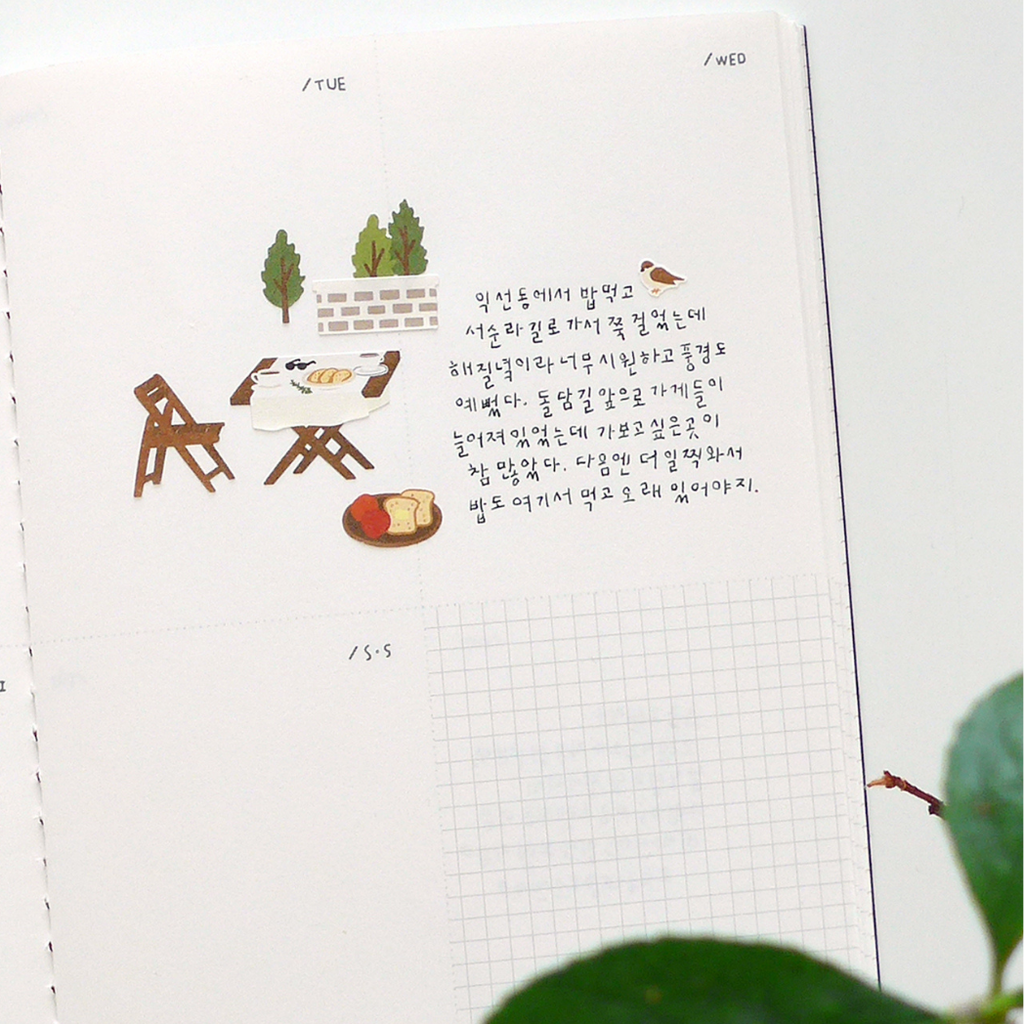 /TUE
/WED
익선동에서 밥먹고
서순라길로가서 쭉 걸었는데
해질녘이라 너무 시원하고 풍경도
예뻤다. 돌담길 앞으로 가게들이
늘어져 있었는데 가보고싶은곳이
참 많았다. 다음엔 더 일찍와서
밥도 여기서 먹고 오래 있어야지.
/S·S